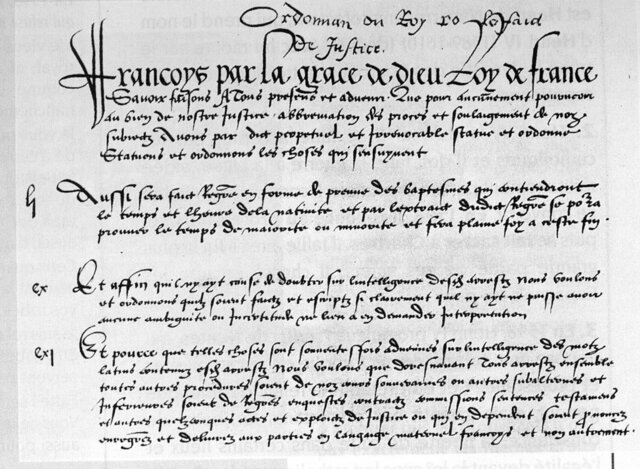 Ordonnan du Roy le faict
De Justice.
Francoys par la grace de dieu Roy de france
Savoir faisons A Tous presens et advenir. Que pour aucunement pourveoir
au bien de nostre Justice abbreviation des proces et soulaigement de noz
subiectz Avons par edict perpetuel et Irrevocable statue et ordonne
Statuons et ordonnons les choses qui sensuyvent
li Aussi sera faict Regre en forme de preuve des baptesmes qui contiendront
le temps et lheure dela nativite et par lextraict dudict Regre se porra
prouver le temps de maiorite ou minorite et fera plaine foy a ceste fin
cx Et affin quil ny ayt cause de doubter sur lintelligence desd arrestz Nous voulons
et ordonnons quilz soient faictz et escriptz si clairement quil ny ayt ne puisse avoir
aucune ambiguite ou Incertitude ne lieu a en demander Interpretation
cxi Et pource que telles choses sont souventesfois advenues sur lintelligence des motz
latins contenuz esd arrestz Nous voulons que doresnavant Tous arrestz ensemble
toutes autres procedures soient de noz cours souveraines ou autres subalternes et
Inferieures soient de Regres enquestes contractz commissions sentences testamens
et autres quelzconques actes et exploictz de Justice ou qui en dependent soient prononcez
enregrez et delivrez aux parties en langaige maternel francoys et non autrement.